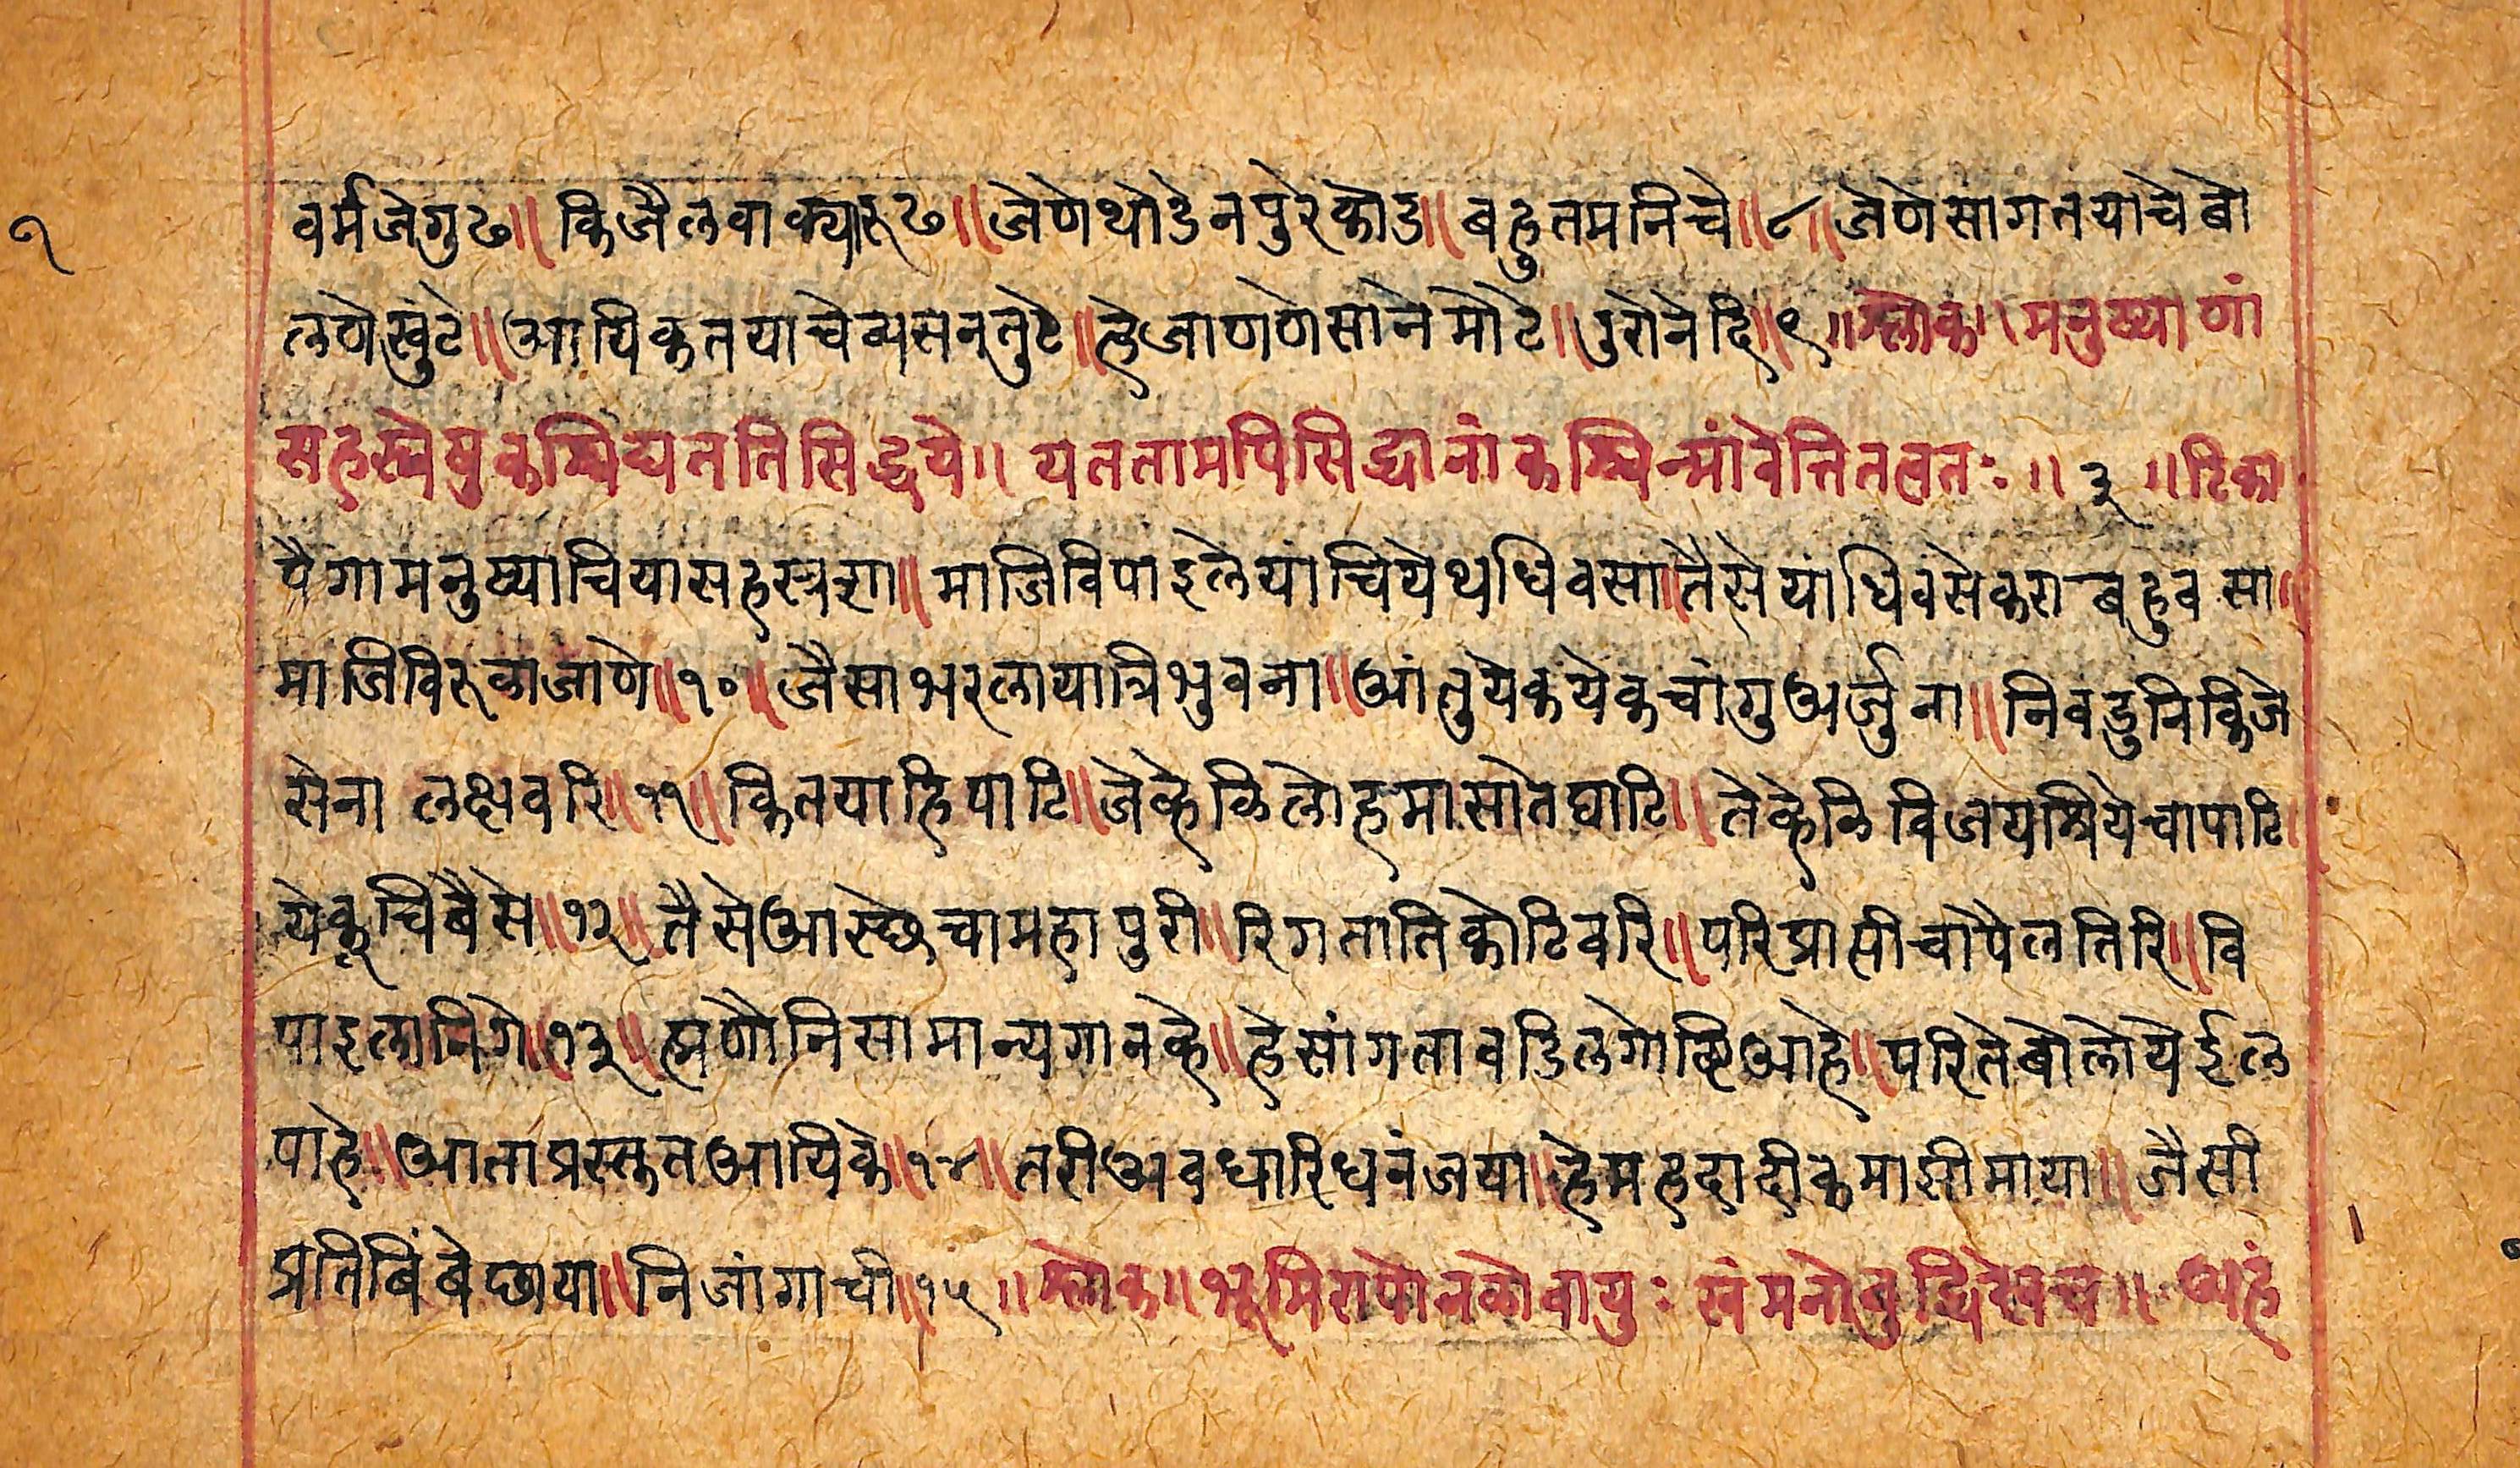 १
वर्मजेगुढ॥ किजैलवाक्यारूढ॥ जेणेथोडेनपुरेकोड॥ बहुतमनिचे॥८॥ जेणेसांगतयाचेबो
लणेखुंटे॥ आयिकतयाचेव्यसनतुटे॥ हेजाणणेसानेमोटे॥ उरोनेदि॥९॥ श्लोक॥ मनुष्याणां
सहस्रेषुकश्चिद्यततिसिद्धये॥ यततामपिसिद्धानांकश्चिन्मांवेत्तितत्वतः॥ ३ ॥ टिका
पैगामनुष्याचियासहस्त्रशा॥ माजिविपाइलेयांचियेथधिवसा॥ तैसेयांधिवंसेकरांबहुवसा॥
माजिविरूळाजाणे॥१०॥ जैसाभरलायात्रिभुवना॥ आंतुयेकयेकचांगुअर्जुना॥ निवडुनिकिजे
सेना लक्षवरि॥११॥ कितयाहिपाटि॥ जेव्हेळिलोहमासातेघाटि॥ तेव्हेळिविजयश्रियेचापाटि
येकुचिबैसे॥१२॥ तैसेआस्छेचामहापुरी॥ रिगतातिकोटिवरि॥ परिप्राप्तीचापैलतिरि॥ वि
पाइलानिगे॥१३॥ ह्मणौनिसामान्यगानव्हे॥ हेसांगतावडिलगोष्टिआहे॥ परितेबोलोयेईल
पाहे॥ आताप्रस्तुतआयिके॥१४॥ तरीअवधारिधनंजया॥ हेमहदादीकमाझीमाया॥ जैसी
प्रतिबिंबेछाया॥ निजांगाची॥१५॥ श्लोक॥ भूमिरापोनळोवायुः खंमनोबुद्धिरेवच॥ अहं